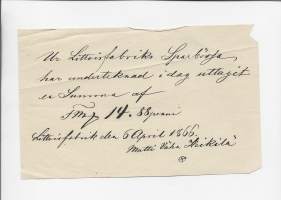 Ur Littoisfabriks Sparbössa
har undertecknad i dag uttagit
en Summa af
FMk 14. 88 penni
Littoisfabrik den 6 April 1866.
Matti Väha Heikilä